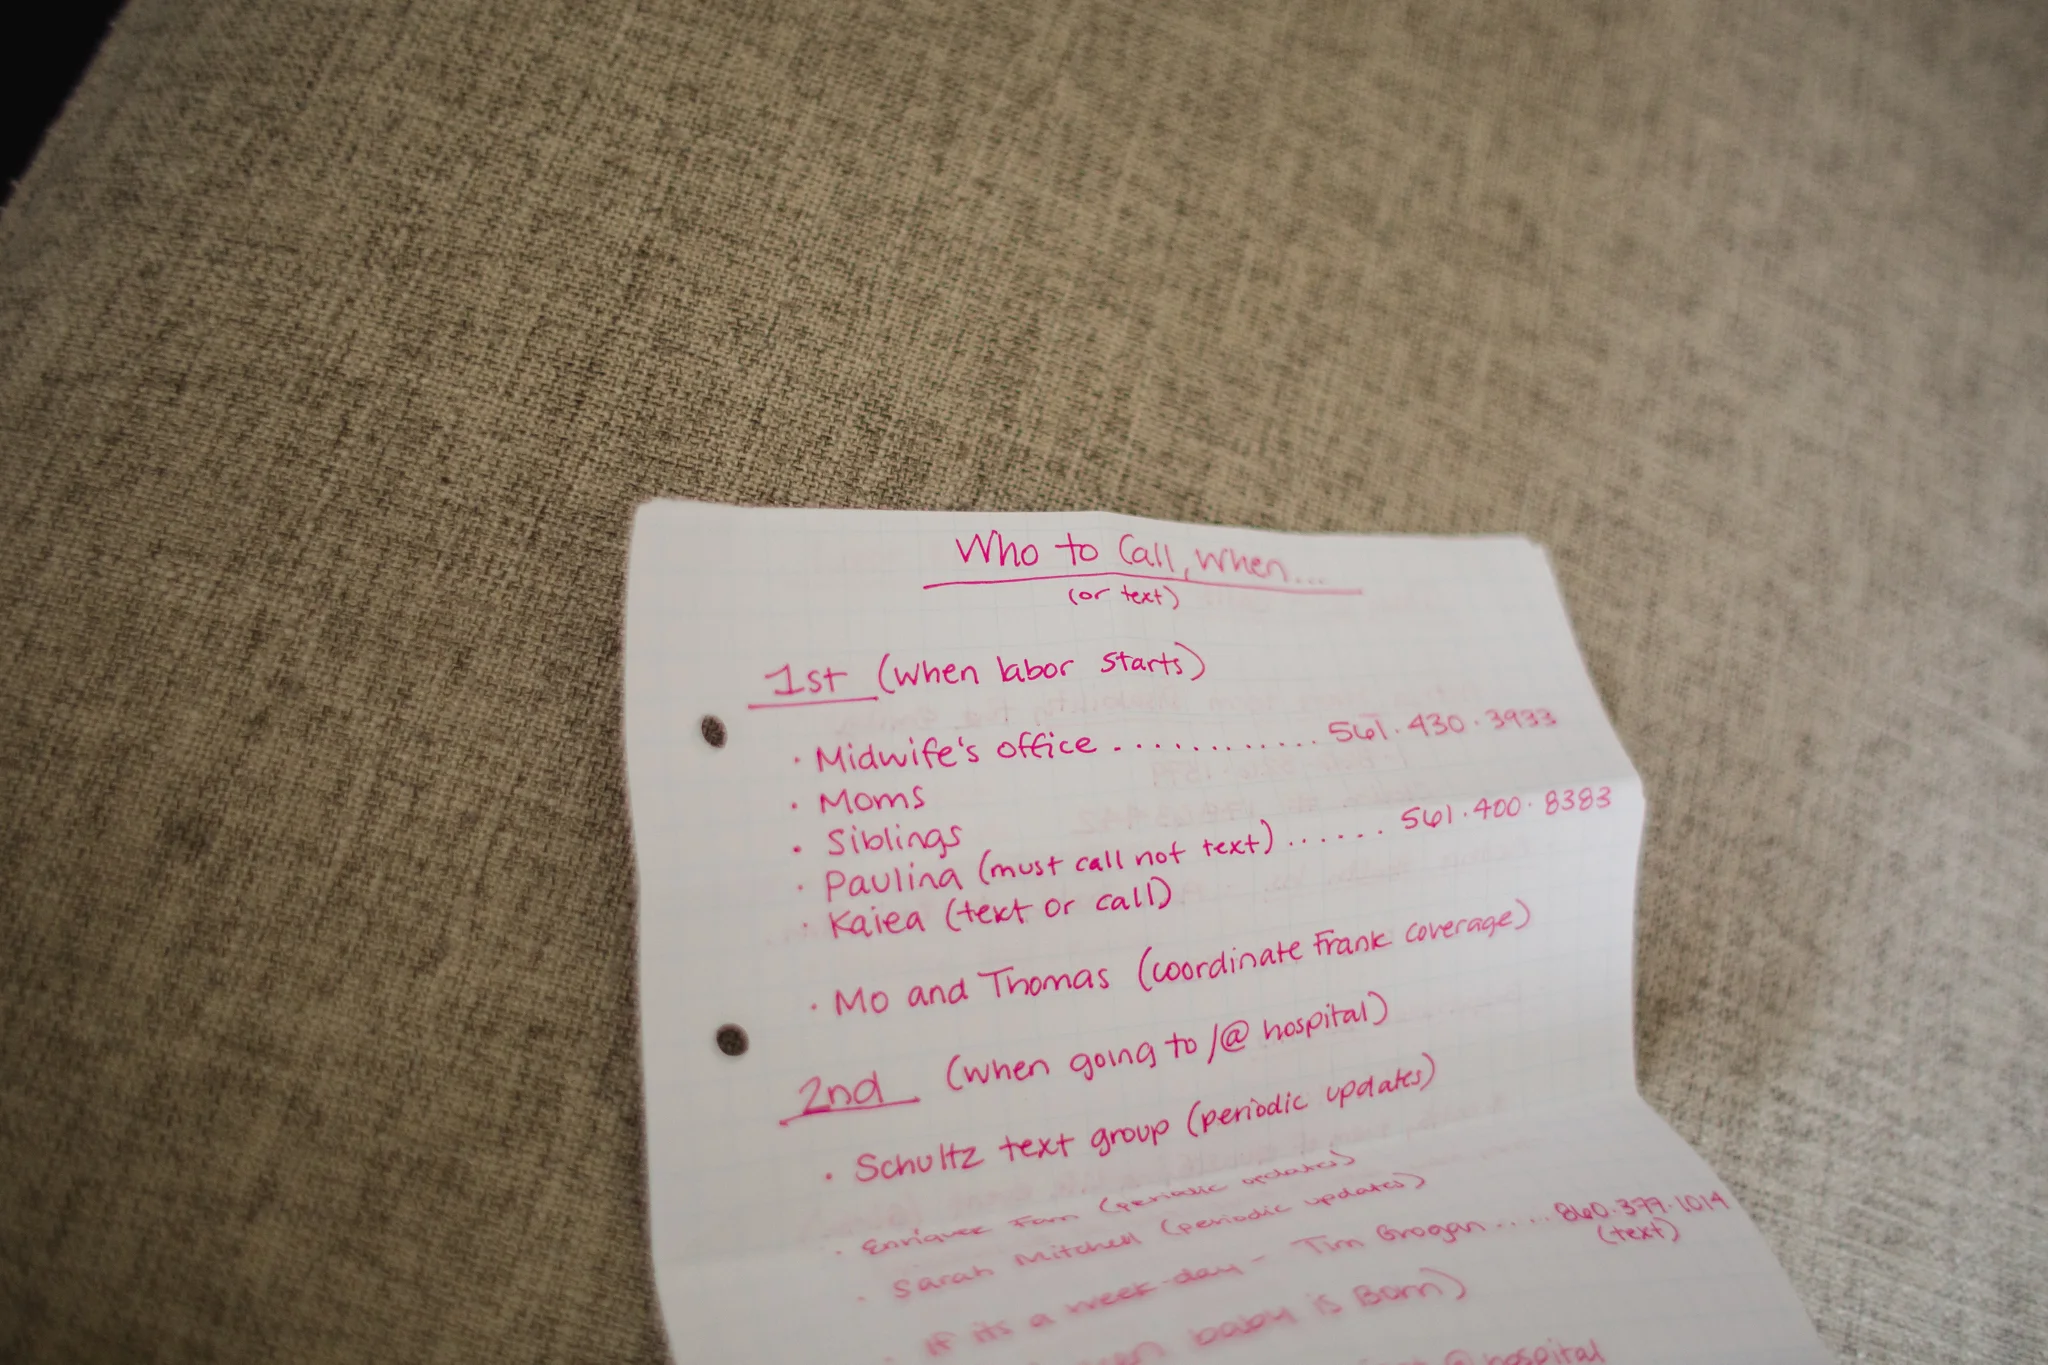 Who to Call, When...
(or text)
1st (when labor starts)
· Midwife's office ............ 561.430.3933
· Moms
· Siblings
· Paulina (must call not text) ...... 561.400.8383
· Kaiea (text or call)
· Mo and Thomas (coordinate Frank coverage)
2nd (when going to/@ hospital)
· Schultz text group (periodic updates)
· Enriquez Fam (periodic updates)
· Sarah Mitchell (periodic updates)
· If its a week-day - Tim Grogan ..... 860.377.1014
(text)
baby is Born)
@ hospital